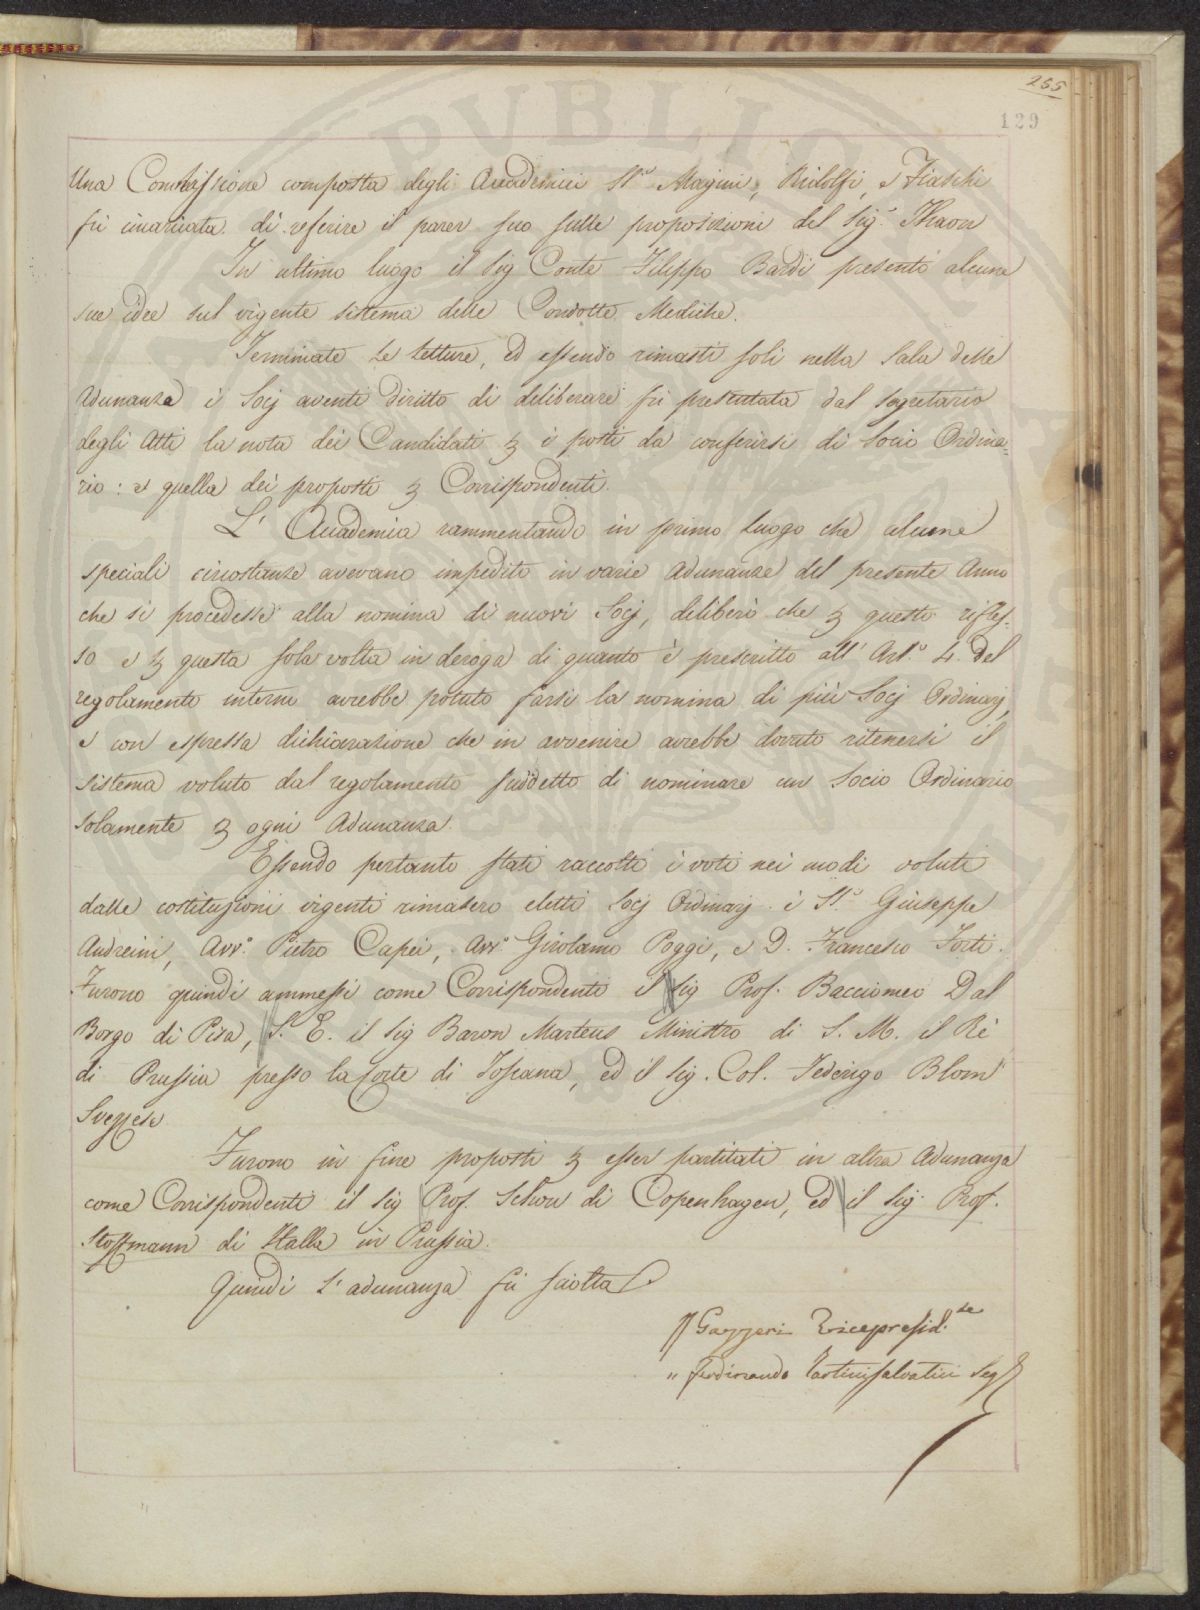 255
129
Una Commissione composta degli Accademici SS.ri Magini, Ridolfi, e Fiaschi
fù incaricata di referire il parer suo sulle proposizioni del Sig. Thaon
In ultimo luogo il Sig Conte Filippo Bardi presentò alcune
sue idee sul vigente sistema delle Condotte Mediche.
Terminate le letture, ed essendo rimasti soli nella Sala delle
Adunanze i Socj aventi diritto di deliberare fù presentata dal segretario
degli Atti la nota dei Candidati p i posti da conferirsi di Socio Ordina=
rio: e quella dei proposti p Corrispondenti.
L' Accademia rammentando in primo luogo che alcune
speciali circostanze avevano impedito in varie Adunanze del presente Anno
che si procedesse alla nomina di nuovi Socj, deliberò che p questo rifles-
so e p questa sola volta in deroga di quanto è prescritto all' Art.o 4. del
regolamento interno avrebbe potuto farsi la nomina di più Socj Ordinarj,
e con espressa dichiarazione che in avvenire avrebbe dovuto ritenersi il
sistema voluto dal regolamento suddetto di nominare un Socio Ordinario
solamente p ogni Adunanza.
Essendo pertanto stati raccolti i voti nei modi voluti
dalle costituzioni vigenti rimasero eletti Socj Ordinarj i SS.ri Giuseppe
Andreini, Avv.o Pietro Capei, Avv.o Girolamo Poggi, e D. Francesco Forti.
Furono quindi ammessi come Corrispondenti il Sig Prof. Bacciomeo Dal
Borgo di Pisa, S. E. il Sig Baron Martens Ministro di S. M. il Rè
di Prussia presso la Corte di Toscana, ed il Sig. Col. Federigo Blom
Svezzese
Furono in fine proposti p esser partitati in altra Adunanza
come Corrispondenti il Sig Prof. Schow di Copenhagen, ed il Sig. Prof.
di Halla in Prussia.
Quindi l' adunanza fù sciolta.
Gazzeri Vicepresid.te
" Ferdinando Tartini Salvatici Seg